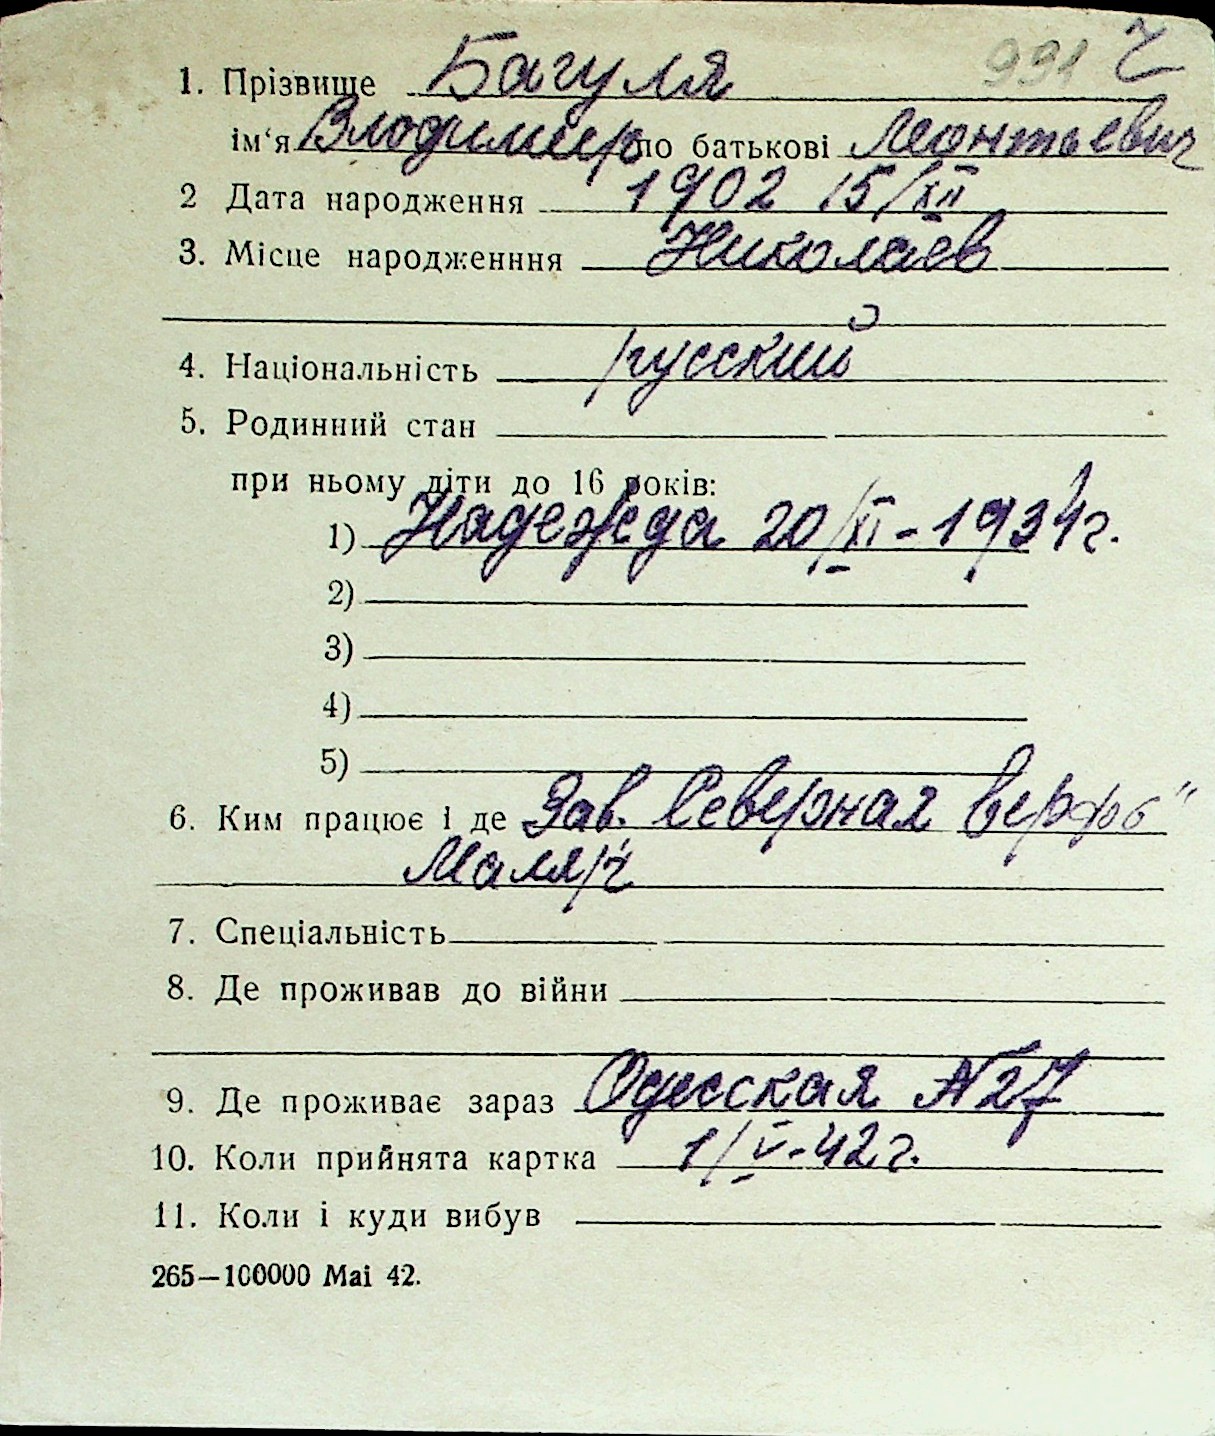 991 Ч
1. Прізвище Багуля
ім‘я Владимир по батькові Леонтьевич
2 Дата народження 1902 15/XII
3. Місце народженння Николаев
4. Національність русский
5. Родинний стан
при ньому діти до 16 років:
1) Надежда 20/XI-1934г.
2)
3)
4)
5)
6. Ким працює і де Зав. Северная верфь"
Маляр
7. Спеціальність
8. Де проживав до війни
9. Де проживає зараз Одесская №27
10. Коли прийнята картка 1/V-42г.
11. Коли і куди вибув
265—100000 Mai 42.